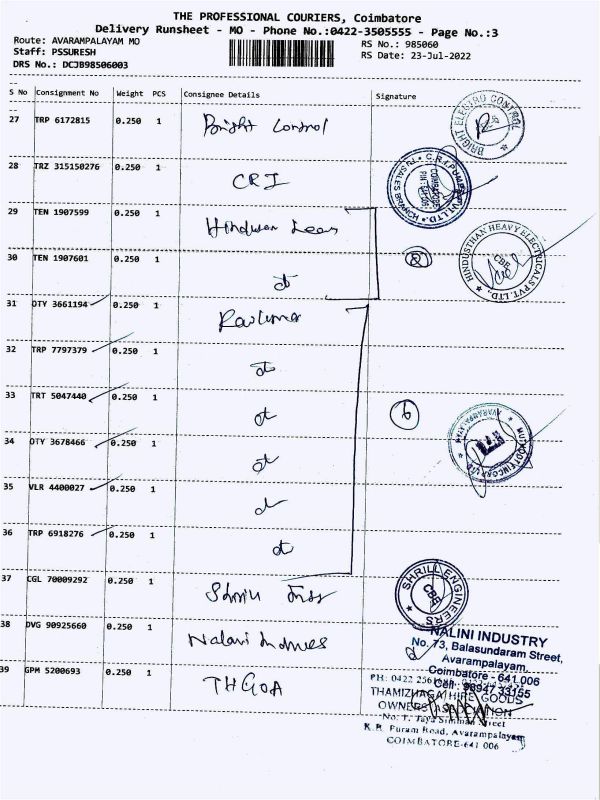 THE PROFESSIONAL COURIERS, Coimbatore
Delivery Runsheet - MO - Phone No.:0422-3505555 - Page No.:3
Route: AVARAMPALAYAM MO RS No.: 985060
Staff: PSSURESH RS Date: 23-Jul-2022
DRS No.: DCJB98506003
S No Consignment No Weight PCS Consignee Details Signature
27 TRP 6172815 0.250 1 Bright Control
BRIGHT ELECTRO CONTROL
28 TRZ 315150276 0.250 1 CRI
C.R.I. PUMPS PVT.LTD. SALES BRANCH
29 TEN 1907599 0.250 1
30 TEN 1907601 0.250 1 dt
2
HINDUSTHAN HEAVY ELECTRICALS PVT. LTD. CBE
31 OTY 3661194 0.250 1
32 TRP 7797379 0.250 1 dt
33 TRT 5047440 0.250 1 dt
6
34 OTY 3678466 0.250 1 dt
35 VLR 4400027 0.250 1 dt
36 TRP 6918276 0.250 1 dt
37 CGL 70009292 0.250 1
SHRILL ENGINEERS CBE
38 DVG 90925660 0.250 1 Nalani
NALINI INDUSTRY
No. 73, Balasundaram Street,
Avarampalayam.
Coimbatore - 641 006
Cell : 98947 33155
39 GPM 5200693 0.250 1 THGOA
PH: 0422
THAMIZHAGA HIRE GOODS
OWNERS ASSOCIATION
Street
K.R. Puram Road, Avarampalayam
COIMBATORE-641 006